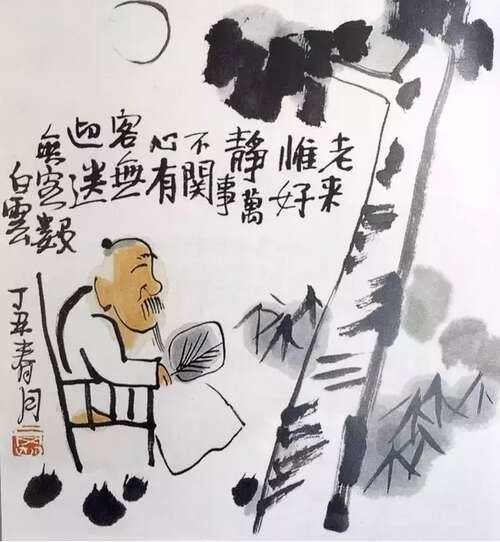 老来
惟好
静萬事
不関
心有
客無
迎送
無客數
白雲
丁丑春月